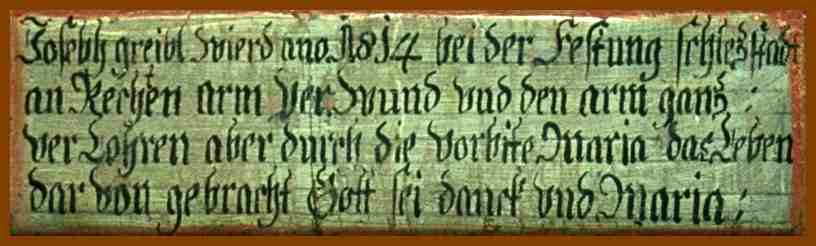 Joseph greibl Wierd ano 1814 bei der Festung schletzstadt
an Rechten arm Ver Wund vnd den arm gantz :
ver Lohren aber durch die vorbitte Maria das Leben
dar von gebracht Gott sei danck vnd Maria :